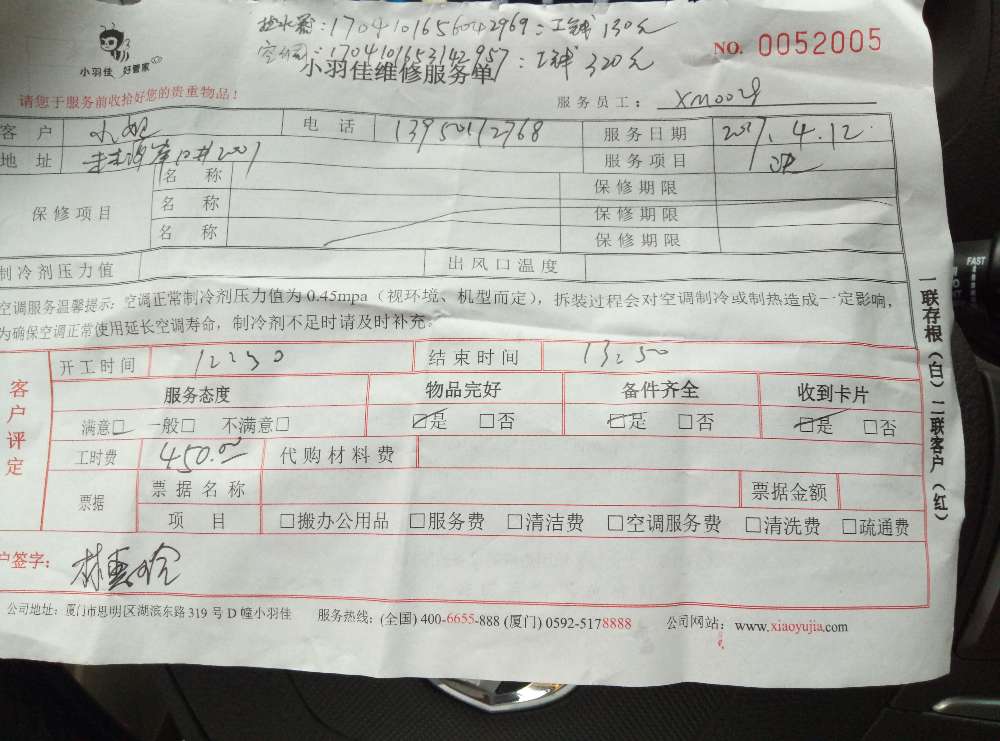 热水器:1704101656042969:工钱130元
空调:1704101653142957:工钱320元
小羽佳 好管家
小羽佳维修服务单
NO. 0052005
请您于服务前收拾好您的贵重物品!
服务员工: XM0029
客 户 电 话 13950112768 服务日期 2017.4.12
地 址 服务项目
保修项目
名 称 保修期限
名 称 保修期限
名 称 保修期限
制冷剂压力值 出风口温度
空调服务温馨提示: 空调正常制冷剂压力值为 0.45mpa(视环境、机型而定),拆装过程会对空调制冷或制热造成一定影响,
为确保空调正常使用延长空调寿命,制冷剂不足时请及时补充。
客户评定
开工时间 12:30 结束时间 13:50
服务态度 物品完好 备件齐全 收到卡片
满意□ 一般□ 不满意□ □是 □否 □是 □否 □是 □否
工时费 450.00 代购材料费
票据 票据名称 票据金额
项 目 □搬办公用品 □服务费 □清洁费 □空调服务费 □清洗费 □疏通费
户签字:
公司地址: 厦门市思明区湖滨东路 319 号 D 幢小羽佳 服务热线: (全国) 400-6655-888 (厦门) 0592-5178888 公司网站: www.xiaoyujia.com
一联存根(白)二联客户(红)
FAST